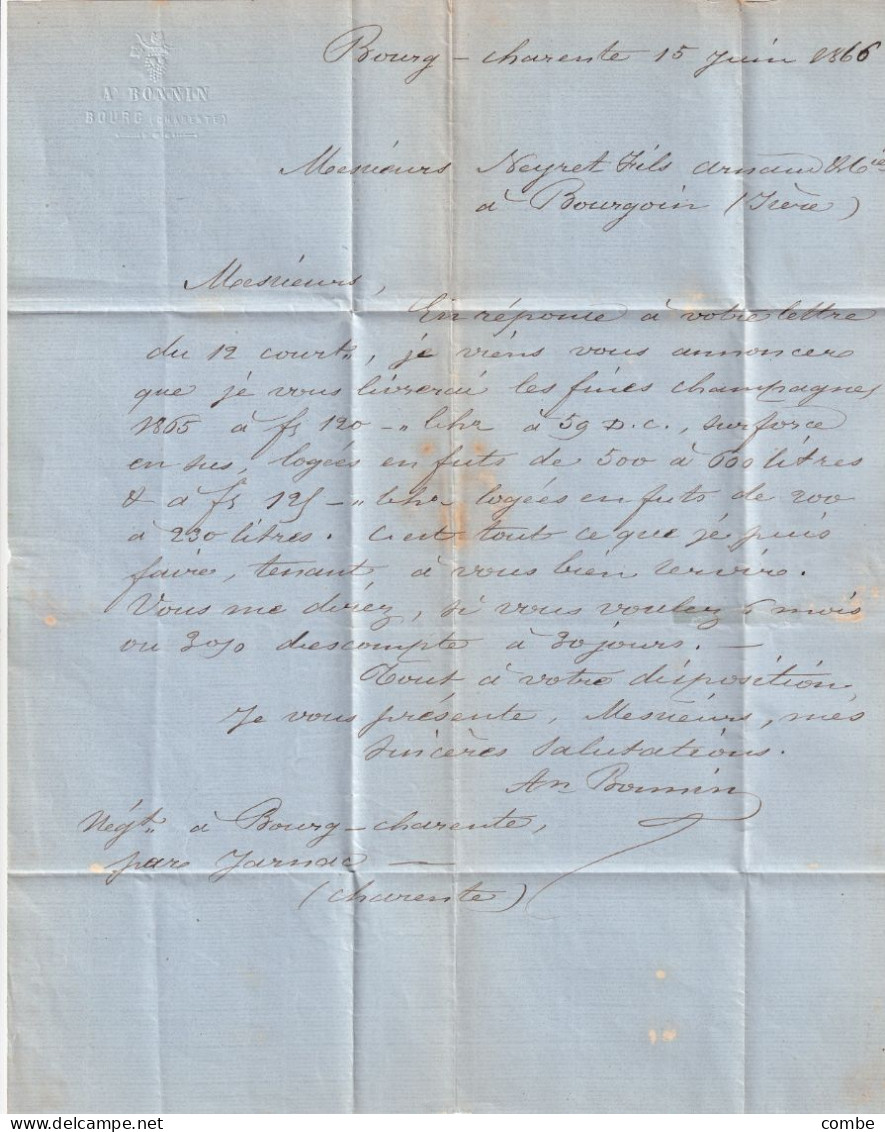 Bourg - charente 15 Juin 1866
A^n BONNIN
BOURG (CHARENTE)
Messieurs Neyret Fils Armand & C^ie
à Bourgoin (Isère)
Messieurs,
En réponse à votre lettre
du 12 court", je viens vous annoncer
que je vous livrerai les fines champagnes
1865 à fs 120 - " lehr à 59 D.c., surforce
en sus, logées en futs de 500 à 600 litres
& à fs 125 - " lehr logées en futs de 200
à 230 litres. C'est tout ce que je puis
faire, tenant à vous bien servir.
Vous me direz, si vous voulez 6 mois
ou 3 0/0 descompte à 30 jours. -
Tout à votre disposition
Je vous présente, Messieurs, mes
sincères salutations.
An Bonnin
Négt" à Bourg-charente,
par Jarnac -
(charente)
www.delcampe.net
combe